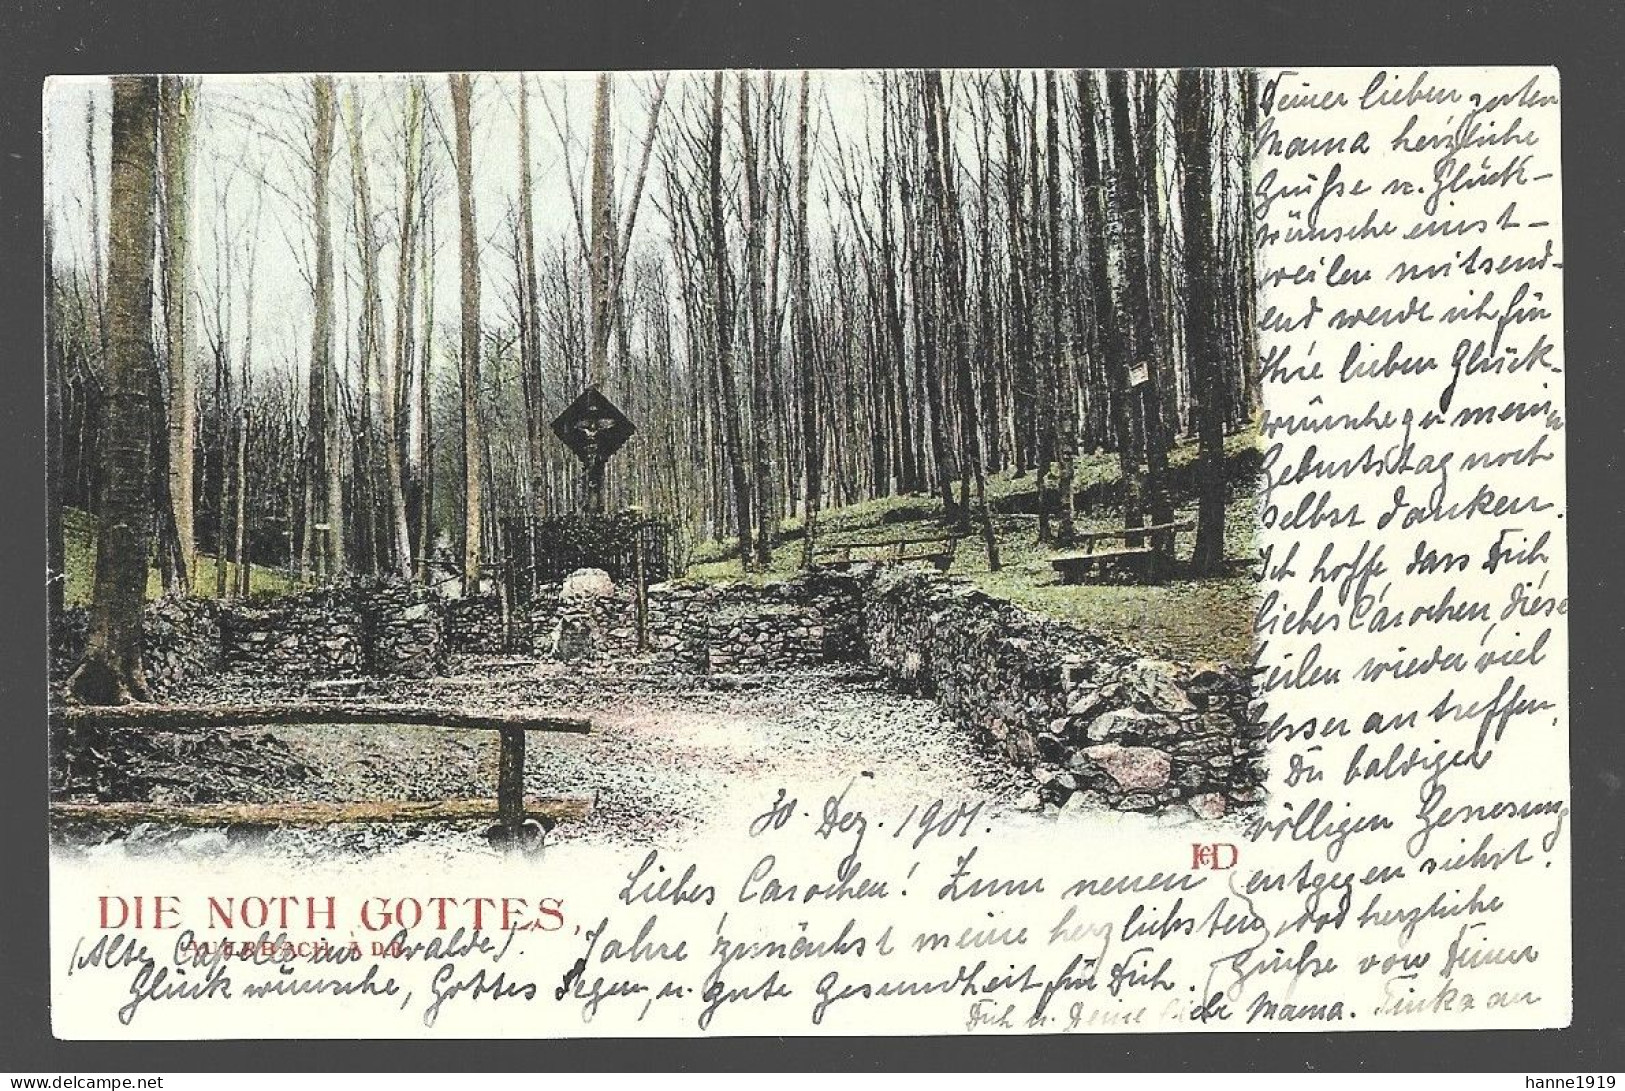 30. Dez. 1901.
Liebes Carochen! Zum neuen
Jahre zunächst meine herzlichsten
Glückwünsche, Gottes Segen, u. gute Gesundheit für Dich.
Deiner lieben guten
Mama herzliche
Grüße u. Glück-
wünsche einst-
weilen mitsend-
end werde ich für
Ihre lieben Glück-
wünsche zu meinem
Geburtstag noch
selbst danken.
Ich hoffe, dass Dich
liebes Carochen, diese
Zeilen wieder viel
besser antreffen,
Du baldigen
völligen Genesung
entgegen siehst.
und herzliche
Grüße von Deiner
an
Dich u. Deine liebe Mama.
DIE NOTH GOTTES,
AUERBACH A D B.
(Alte Capelle im Walde).
HD
hanne1919